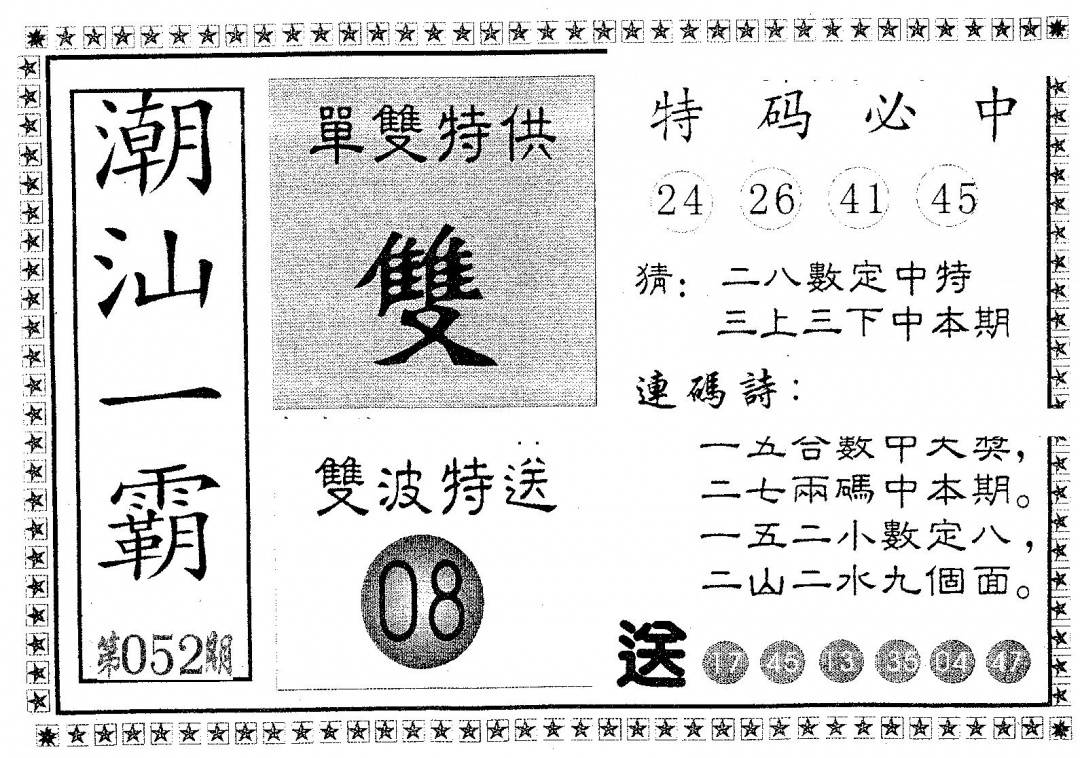 潮汕一霸
第052期
單雙特供
雙
雙波特送
08
特码必中
24 26 41 45
猜：二八數定中特
三上三下中本期
連碼詩：
一五合數中大獎，
二七兩碼中本期。
一五二小數定八，
二山二水九個面。
送 17 45 13 35 04 47